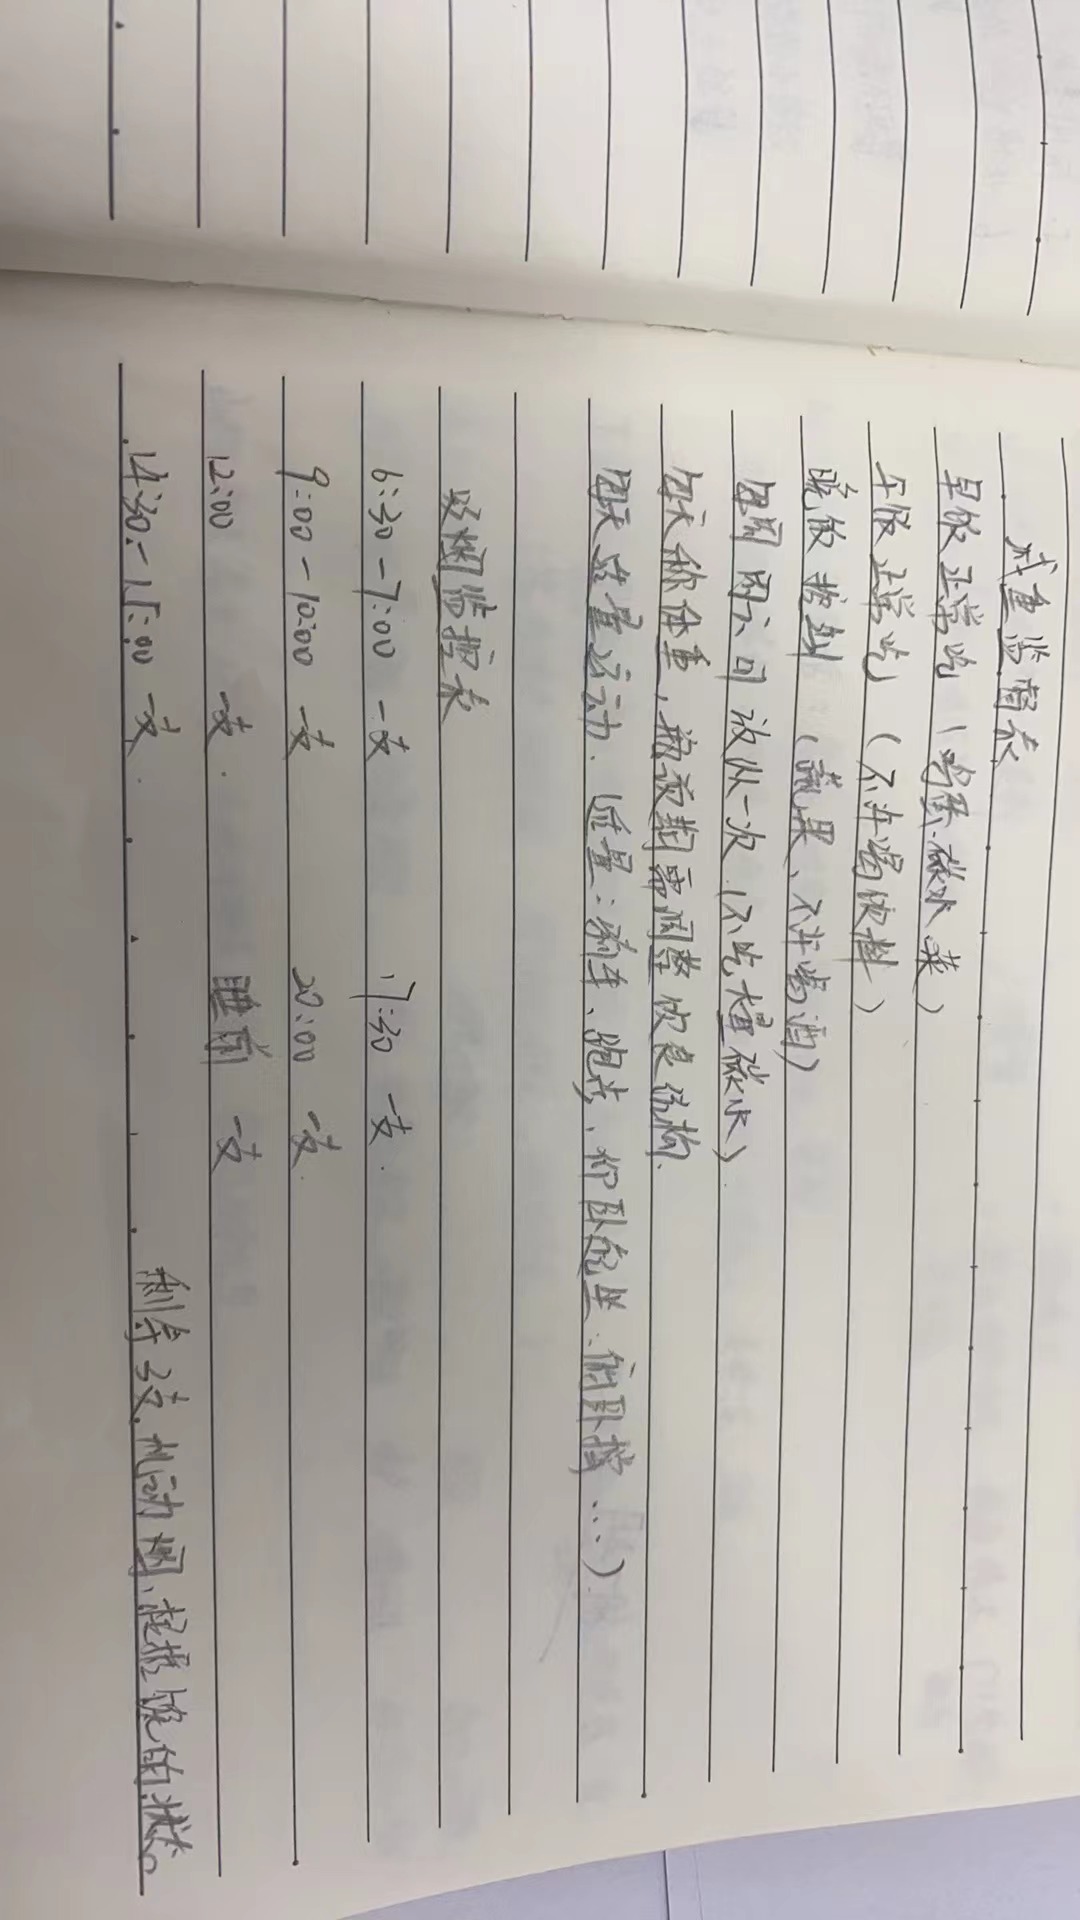 减重监督表
早饭正常吃（鸡蛋、碳水、菜）
午饭正常吃（不许喝饮料）
晚饭控制（蔬果、不许喝酒）
每周周六可放纵一次（不吃大量碳水）
每天称体重，瓶颈期需调整饮食结构.
每天定量运动.（定量：动车、跑步、仰卧起坐、俯卧撑...）.
吸烟监控表
6:30-7:00 一支 17:30 一支.
9:00-10:00 一支 20:00 一支.
12:00 一支. 睡前 一支
14:30-15:00 一支. 剩余3支.机动烟、根据